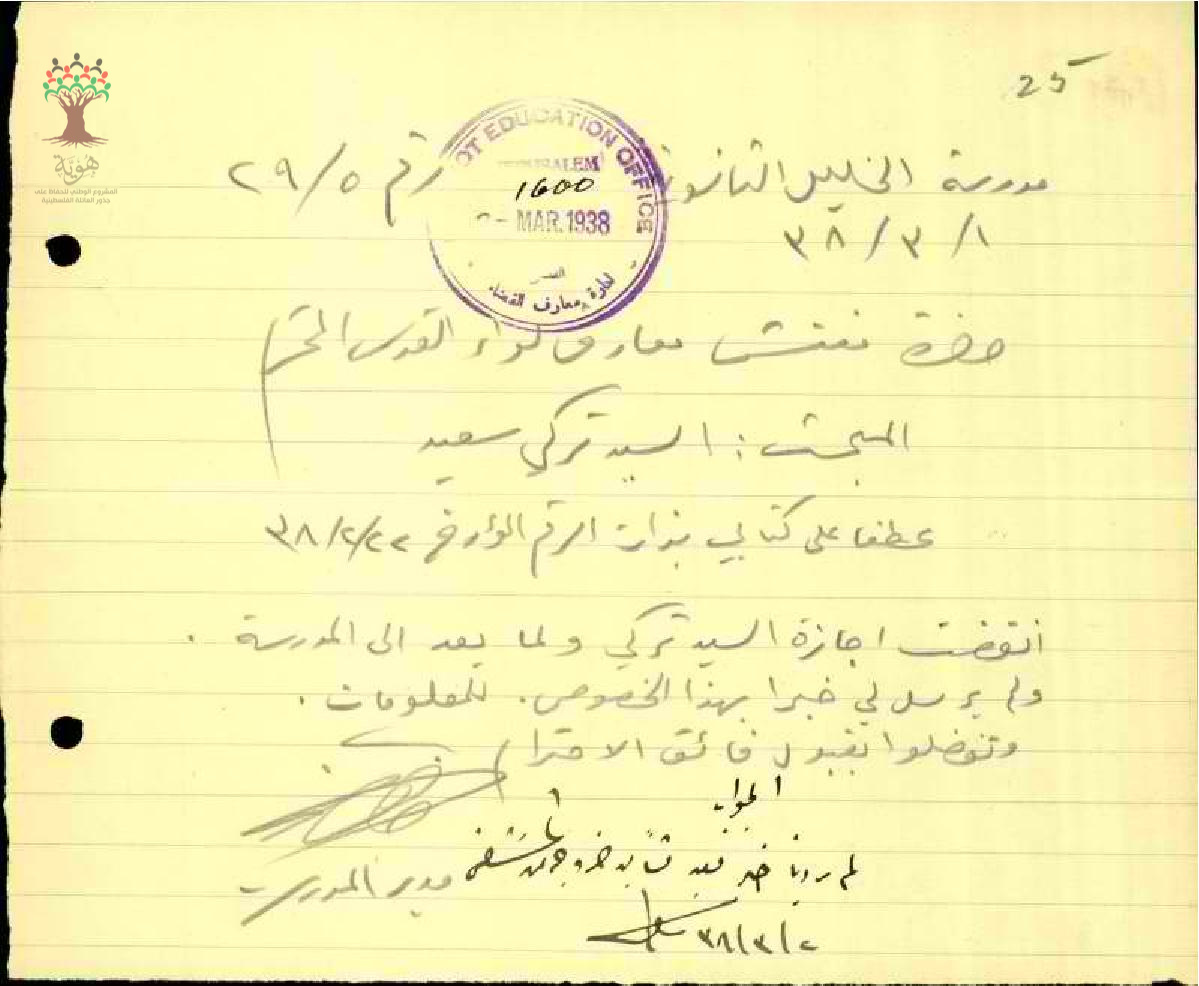 25
هوية
المشروع الوطني للحفاظ على
جذور العائلة الفلسطينية
EDUCATION OFFICE
JERUSALEM
1600
MAR. 1938
القدس
ادارة معارف القضاء
مدرسة الخليل الثانوية رقم ٢٩/٥
٣٨/٣/١
حضرة مفتش معارف لواء القدس المحترم
المبحث : السيد تركي سعيد
عطفا على كتابي بذات الرقم المؤرخ ٣٨/٢/٢٢
انقضت اجازة السيد تركي ولما يعد الى المدرسة .
ولم يرسل لي خبرا بهذا الخصوص . للمعلومات .
وتفضلوا بقبول فائق الاحترام
مدير المدرسة
الجواب
لم يردنا خبر
٣٨/٣/٢